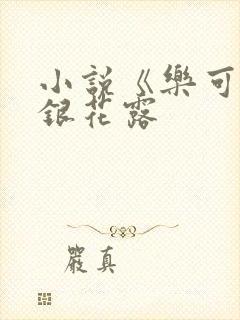 小説《樂可
銀花露
嚴真